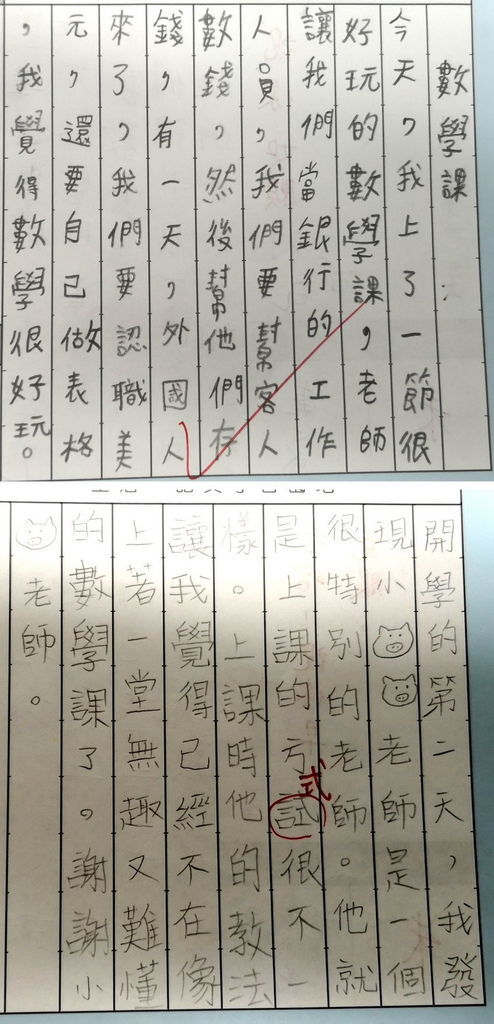 數學課
今天，我上了一節很
好玩的數學課，老師
讓我們當銀行的工作
人員，我們要幫客人
數錢，然後幫他們存
錢，有一天，外國人
來了，我們要認職美
元，還要自己做表格
，我覺得數學很好玩。
開學的第二天，我發
現小老師是一個
很特別的老師。他就
是上課的方試很不一
式
樣。上課時他的教法
讓我覺得已經不在像
上著一堂無趣又難懂
的數學課了。謝謝小
老師。